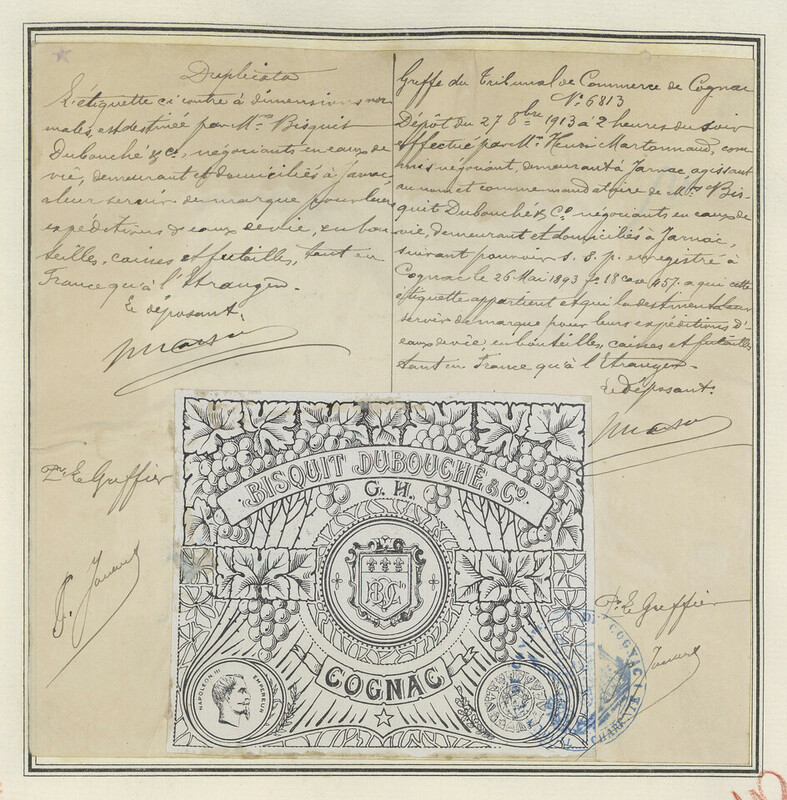 Duplicata
L'étiquette ci contre à dimensions nor
males, est destinée par M.rs Bisquit
Dubouché & Co, négociants en eaux de
vie, demeurant et domiciliés à Jarnac
à leur servir de marque pour leurs
expéditions d'eaux de vie, en bou
teilles, caisses et futailles, tant en
France qu'à l'Etranger.
Le déposant,
Pr Le Greffier
Greffe du Tribunal de Commerce de Cognac
No 6813
Dépôt du 27 8bre 1913 à 2 heures du soir
effectué par Mr Henri Martonnaud, com
mis négociant, demeurant à Jarnac agissant
au nom et comme mandataire de M.rs Bis
quit Dubouché & Co négociants en eaux de
vie, demeurant et domiciliés à Jarnac,
suivant pouvoir s. s. p. enregistré à
Cognac le 26 Mai 1893 fo 18 case 457. a qui cette
étiquette appartient et qui la destinent à leur
servir de marque pour leurs expéditions d'
eaux de vie, en bouteilles, caisses et futailles
tant en France qu'à l'Etranger.
Le déposant.
Pr Le Greffier
BISQUIT DUBOUCHÉ & Co.
G. H.
COGNAC
NAPOLEON III EMPEREUR
DE COGNAC